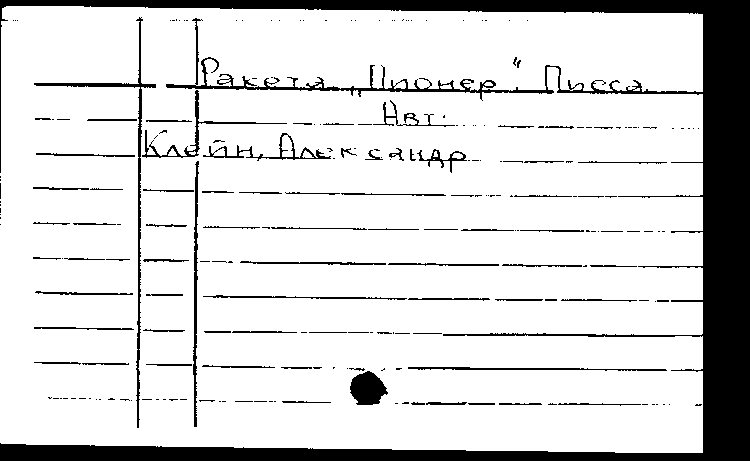 Ракета „Пионер“. Пиеса.
Авт.
Клейн, Александр